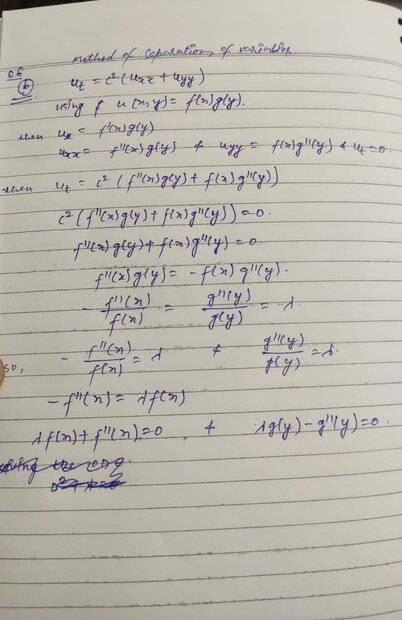 method of separation of variables.
Q6
(b) u_t = c²(u_xx + u_yy)
using u(x,y) = f(x)g(y).
then u_x = f'(x)g(y)
u_xx = f''(x)g(y) & u_yy = f(x)g''(y) & u_t = 0.
then u_t = c²(f''(x)g(y) + f(x)g''(y))
c²(f''(x)g(y) + f(x)g''(y)) = 0.
f''(x)g(y) + f(x)g''(y) = 0
f''(x)g(y) = -f(x)g''(y).
- f''(x)/f(x) = g''(y)/g(y) = λ
so, - f''(x)/f(x) = λ & g''(y)/g(y) = λ.
-f''(x) = λf(x)
λf(x) + f''(x) = 0, & λg(y) - g''(y) = 0.